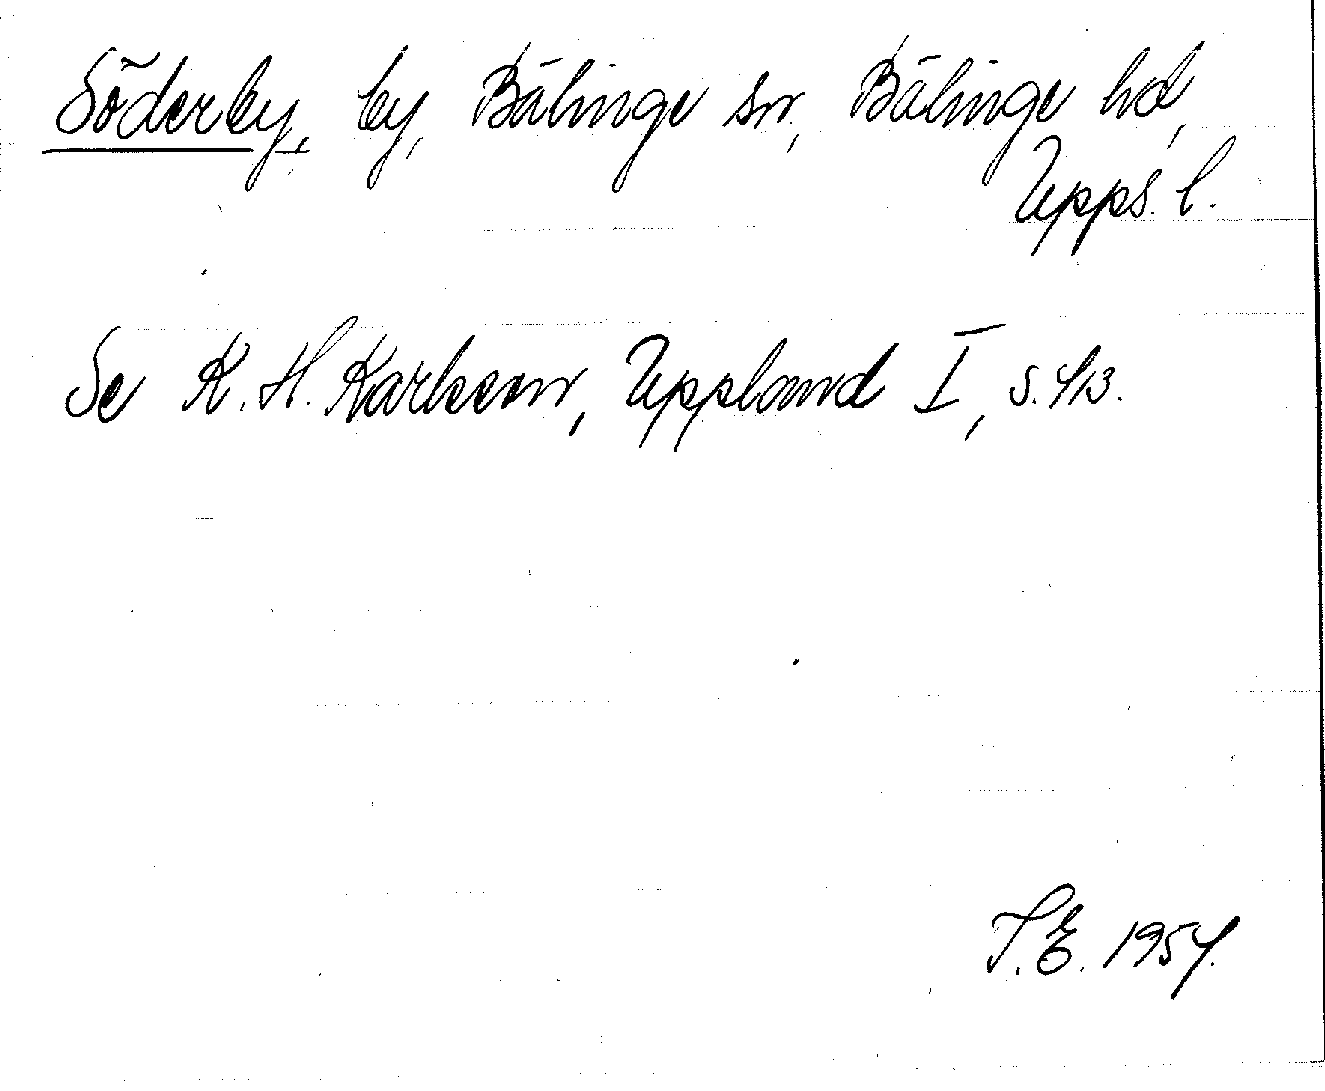 Söderby, by, Bälinge sn, Bälinge hd,
Upps. l.
Se K. H. Karlsson, Uppland I, s. 43.
S. E. 1954.